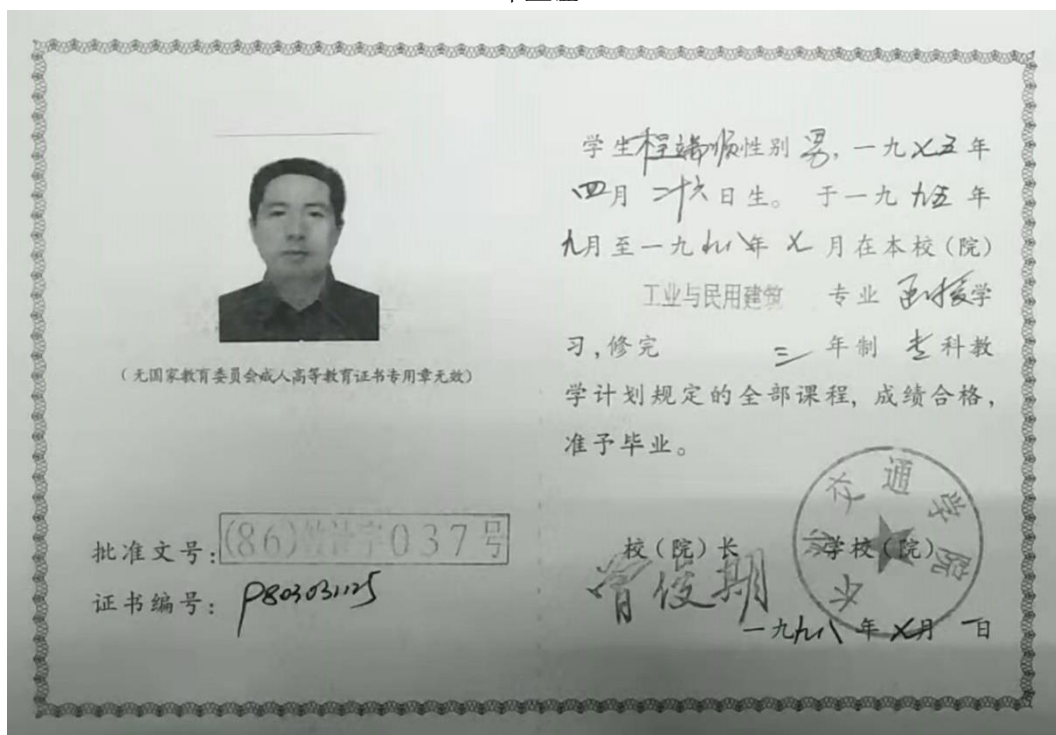 (无国家教育委员会成人高等教育证书专用章无效)
批准文号:(86) 037号
证书编号:P803031125
学生程瑞顺性别男,一九七五年
四月二十六日生。于一九九五年
九月至一九九八年七月在本校(院)
工业与民用建筑 专业函授学
习,修完 三年制 专科教
学计划规定的全部课程,成绩合格,
准予毕业。
校(院)长 学校(院)
交通学院
一九九八年七月一日